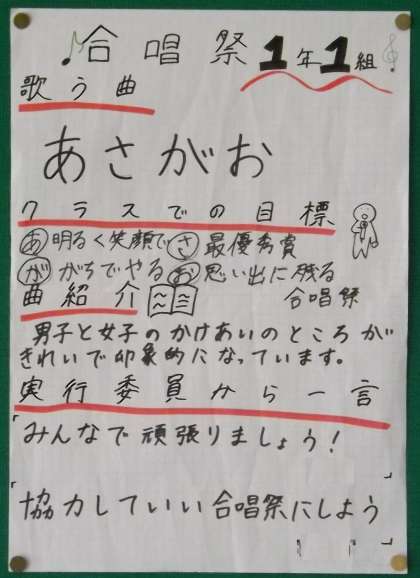 合唱祭 1年1組
歌う曲
あさがお
クラスでの目標
あ 明るく笑顔で さ 最優秀賞
が がちでやる お 思い出に残る
合唱祭
曲紹介
男子と女子のかけあいのところが
きれいで印象的になっています。
実行委員から一言
「みんなで頑張りましょう!
「
協力していい合唱祭にしよう
」